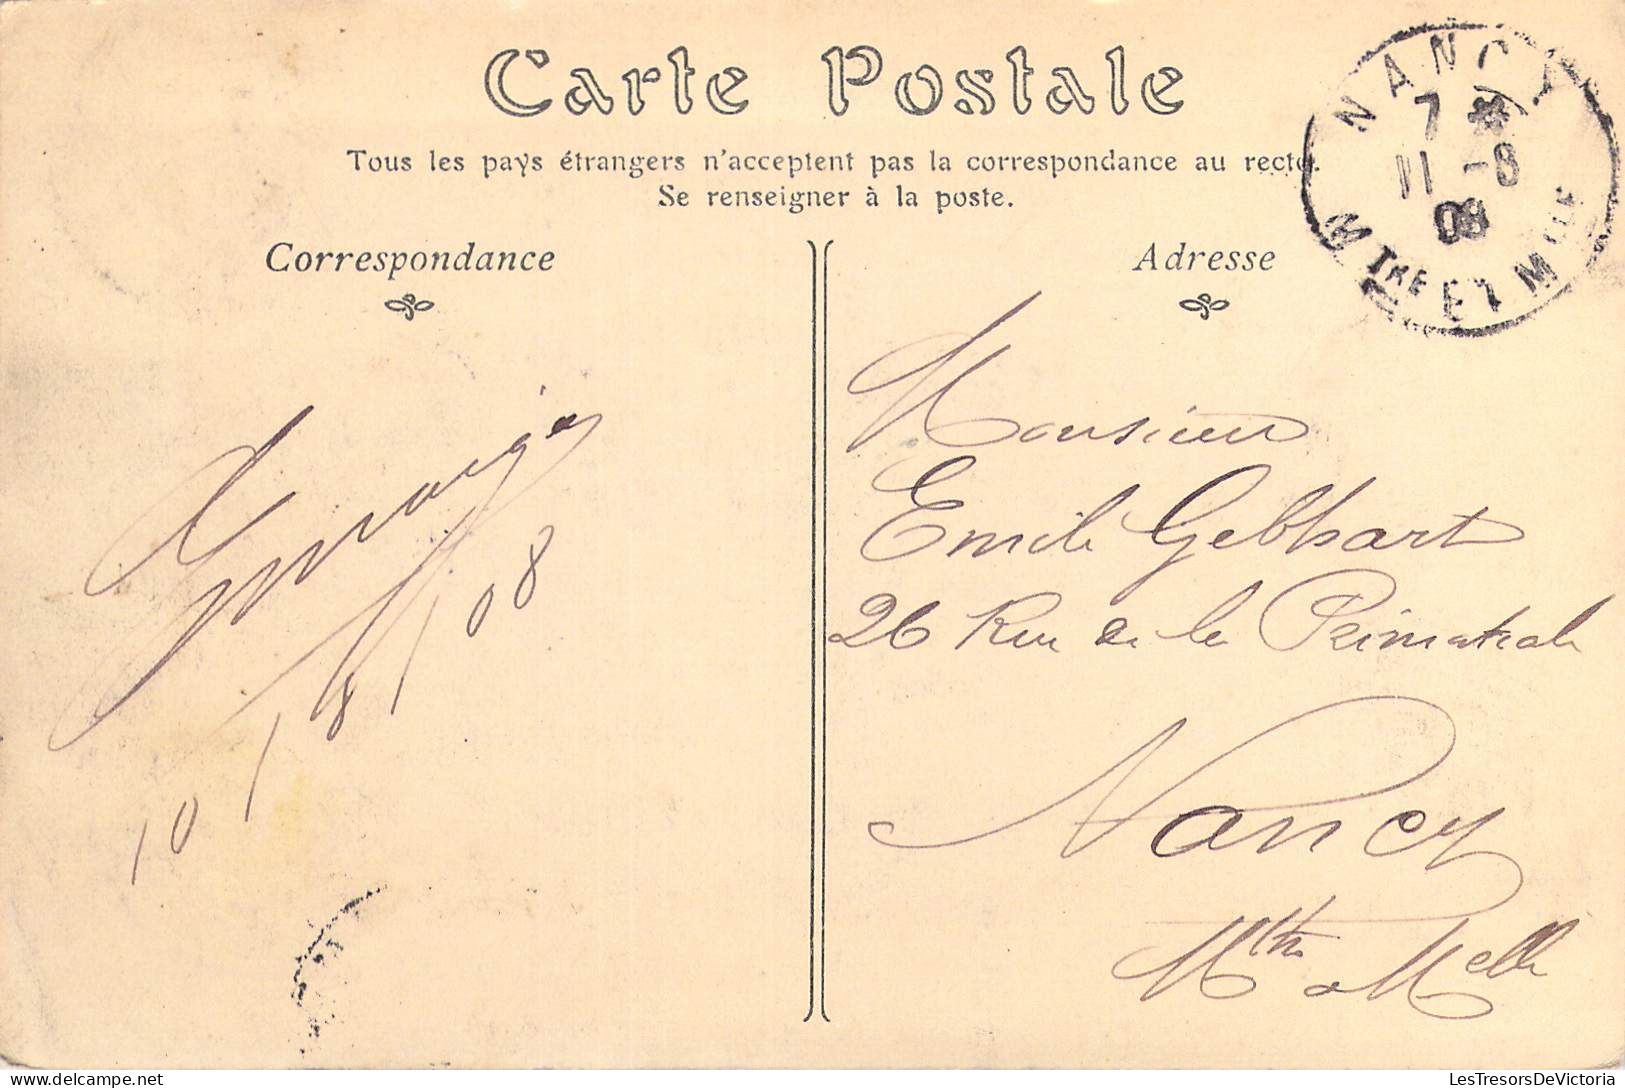 Carte Postale
Tous les pays étrangers n'acceptent pas la correspondance au recto.
Se renseigner à la poste.
Correspondance
Adresse
NANCY
7
11 -8
08
MTHE ET MLLE
10/8/08
Monsieur
Emile Gebhart
26 Rue de la Primatiale
Nancy
Mthe Melle
LesTresorsDeVictoria